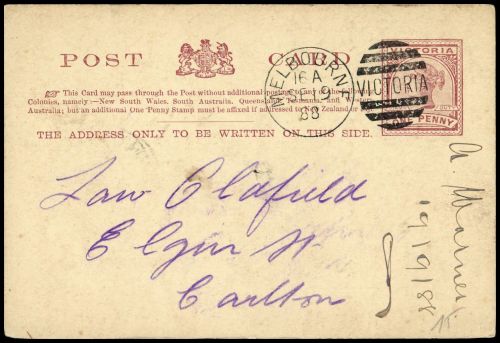 POST CARD
VICTORIA
PENNY
This Card may pass through the Post without additional postage to any of the following
Colonies, namely:—New South Wales, South Australia, Queensland, Tasmania, and West
Australia; but an additional One Penny Stamp must be affixed if addressed to New Zealand or
THE ADDRESS ONLY TO BE WRITTEN ON THIS SIDE.
MELBOURNE
16 A
SE 19
88
VICTORIA
Law Clafield
Elgin St
Carlton
A. Warner
19/9/88